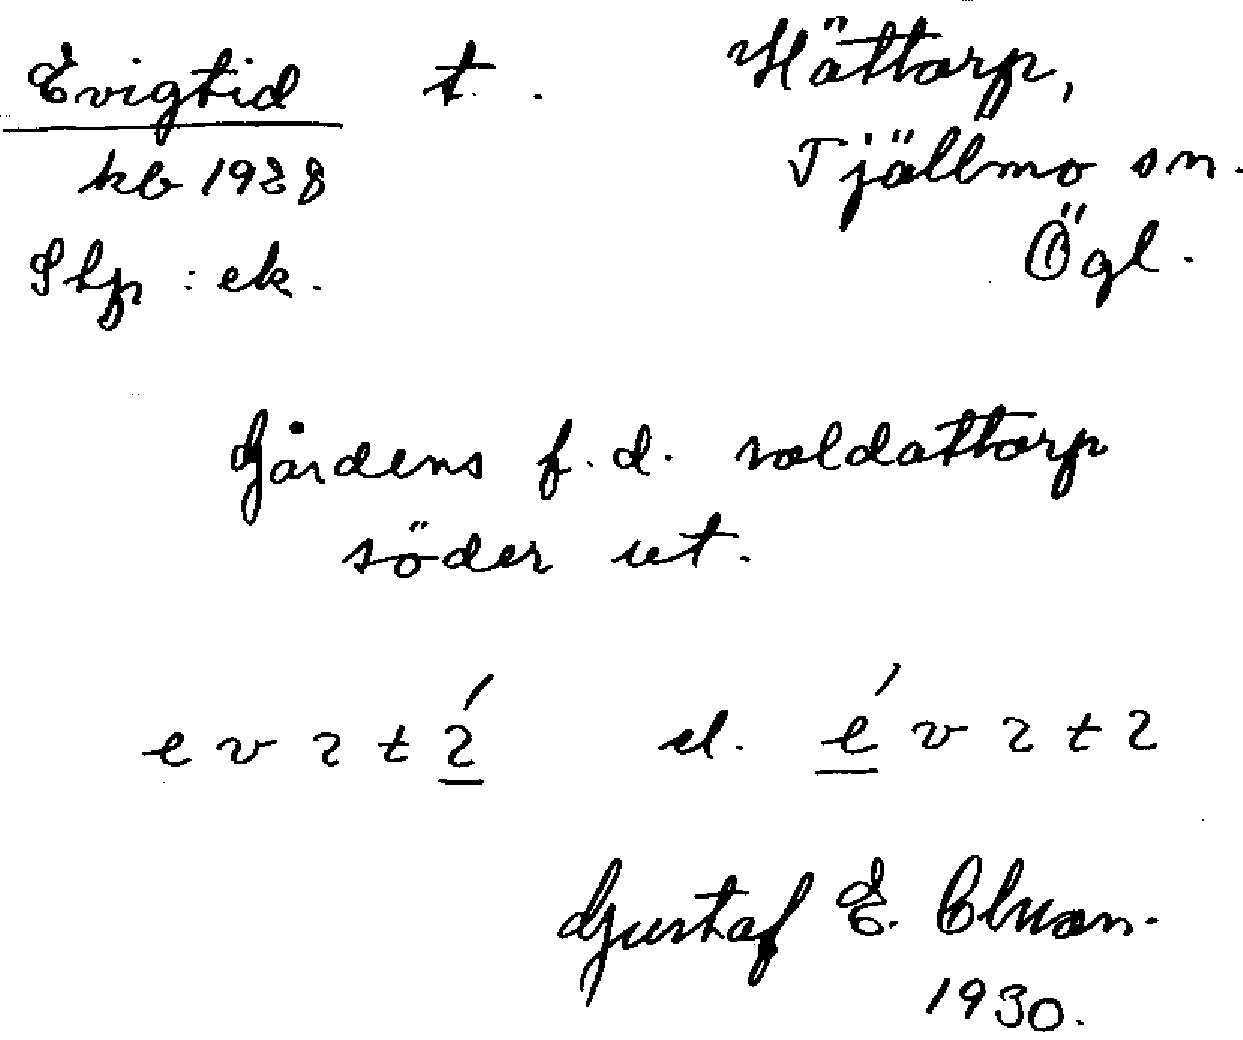 Evigtid t. Hättorp,
kb 1928 Tjällmo sn.
Shp: ek. Ögl.
Gårdens f. d. soldattorp
söder ut.
e v ɿ t ɿ́ el. é v ɿ t ɿ
Gustaf E. Cluson.
1930.